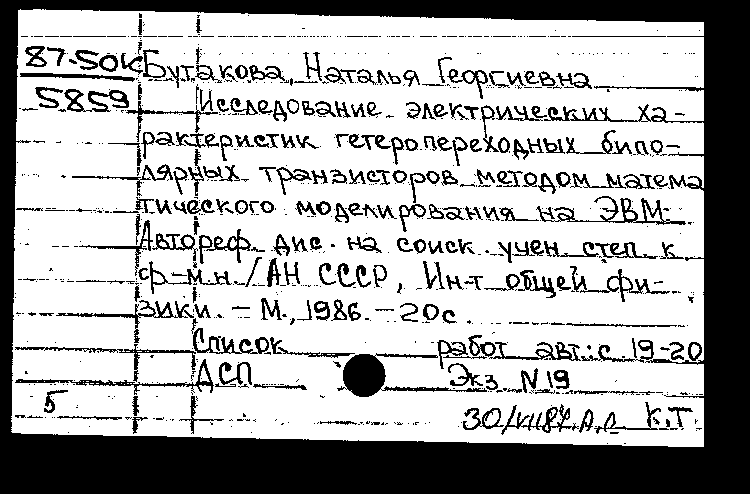 87-50К Бутакова, Наталья Георгиевна
5859 Исследование электрических ха-
рактеристик гетеропереходных бипо-
лярных транзисторов методом матема
тического моделирования на ЭВМ:
Автореф. дис. на соиск. учен. степ. к
ф-м.н. / АН СССР, Ин-т общей фи-
зики. – М., 1986. – 20с.
Список работ авт.: с 19-20
ДСП Экз N 19
5
30/VII87. К.Т